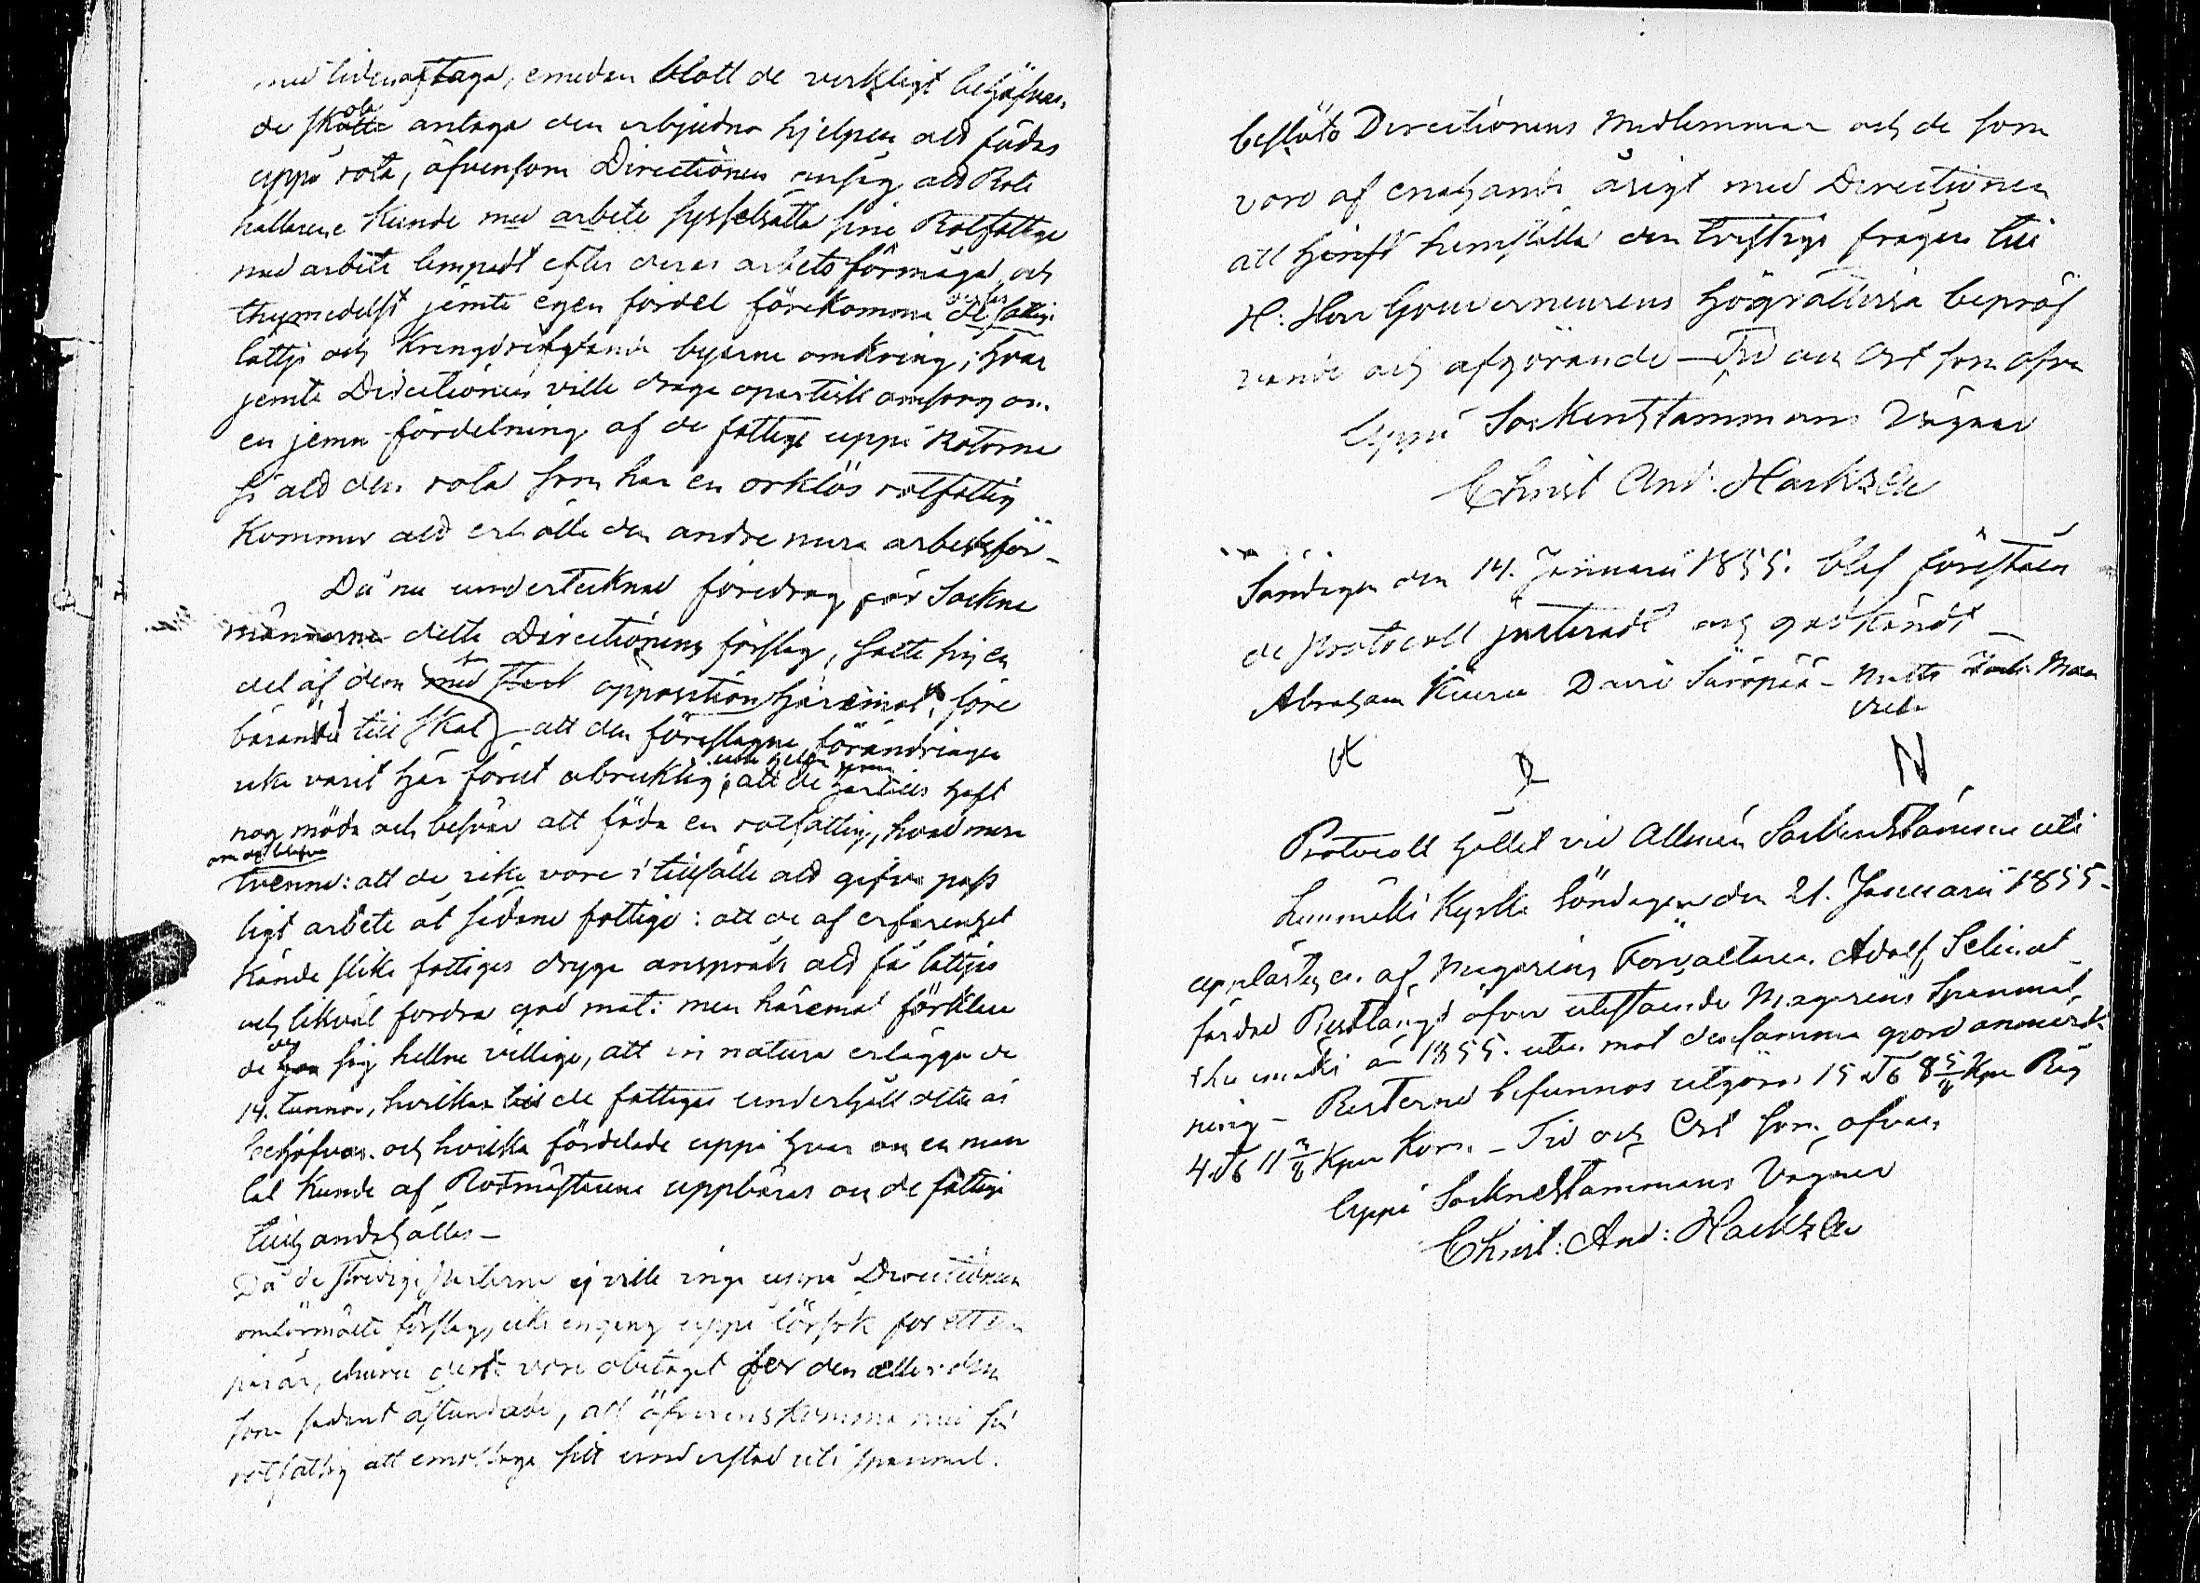 med tiden aftaga, emedan blott de verkligt behöfvan
de skola antaga den erbjudna hjelpen att födas
uppå rota, äfvensom Directionen ansåg att Rote
hållarene kunde med arbete sysselsätta sine Rotfattige
med arbete lempadt efter deras arbetsförmåga, och
thymedelst jemte egen fördel förekomma deras
lättje och kringdrifvande byarne omkring; hvar
jemte Directionen ville draga opartisk omsorg om
en jemn fördelning af de fattige uppå Rotorne
så att den rota som har en orklös rotfattig
kommer att erhålla den andre mera arbetsför_
Då nu undertecknad föredrog för Sockne
männerne detta Directionens förslag, satte sig en
del af dem opposition häremot, före
bärande till skäl att den föreslagne förändringen
icke varit här förut obruklig; att de härtills haft
nog möda och besvär att föda en rotfattig, hvad mera
om det blefve
tvenne: att de icke vore i tillfälle att gifva pass
ligt arbete åt sådane fattige: att de af erfarenhet
kände slike fattiges dryga anspråk att få lättjas
och likväl fordra god mat: men häremot förklara
de sig hellre villige, att in natura erlägga de
14 tunnor, hvilka till de fattiges underhåll detta år
behöfvas och hvilka fördelade uppå hvar om en man
tal kunde af Rotmästarene uppbäras och de fattige
tillhandahållas_
Då de stridige parterne ej ville inga uppå Directionens
omförmälte förslag, icke engång uppå försök för ett
par år, ehuru det vore obetaget för den eller den
som sådant åstundade, att öfverenskomma med sin
rotfattig att emottaga sitt understöd uti spannmål.
beslöto Directionens Medlemmar och de som
voro af enahanda åsigt med Directionen
att hänst hemställa den tvistiga frågan till
H: Herr Gouverneurens högrättvisa bepröf
vande och afgörande_ Tid och Ort som ofvan
Uppå Sockenstämmans Vägnar
Christ And: Hackzell
Söndagen den 14. Januari 1855. blef föreståen
de Protocoll justeradt och godkändt_
Abraham Kiuru David Säröpää_ Matts
N
Protocoll hållet vid Allmän Sockenstämma uti
Lumivaara Kyrka Söndagen den 21. Januari 1855_
upplästes en af Magasins Förvaltaren Adolf Selin
färdad Restlängd öfver utestående Magasins Spannmål
år 1855. utan mot densamma gjord anmärk
ning_ Resterne befunnos utgöra 15 T:r 8 Kpr Råg
4 T:r 11 Kpr Korn_ Tid och Ort som ofvan
Uppå Socknestämmans Vägnar
Christ: And: Hackzell